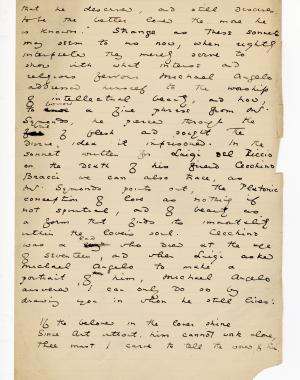 that he deserves, and still deserves
to be the better loved the more he
is known. Strange as these sonnets
may seem to us now, when rightly
interpreted they merely serve to
show with what intense and
religious fervour Michael Angelo
addressed himself to the worship
of intellectual beauty, and how,
to borrow a fine phrase from Mr.
Symonds, he pierced through the
veil of flesh and sought the
Divine idea it imprisoned. In the
sonnet written for Luigi del Riccio
on the death of his friend Cecchino
Bracci we can also trace, as
Mr. Symonds points out, the Platonic
conception of love as nothing if
not spiritual, and of beauty as
a form that finds its immortality
within the lover's soul. Cecchino
was a lad who died at the age
of seventeen, and when Luigi asked
Michael Angelo to make a
portrait of him, Michael Angelo
answered, I can only do so by
drawing you in whom he still lives:
If the beloved in the lover shine
Since Art without him cannot work alone,
Thee must I carve to tell the world of him